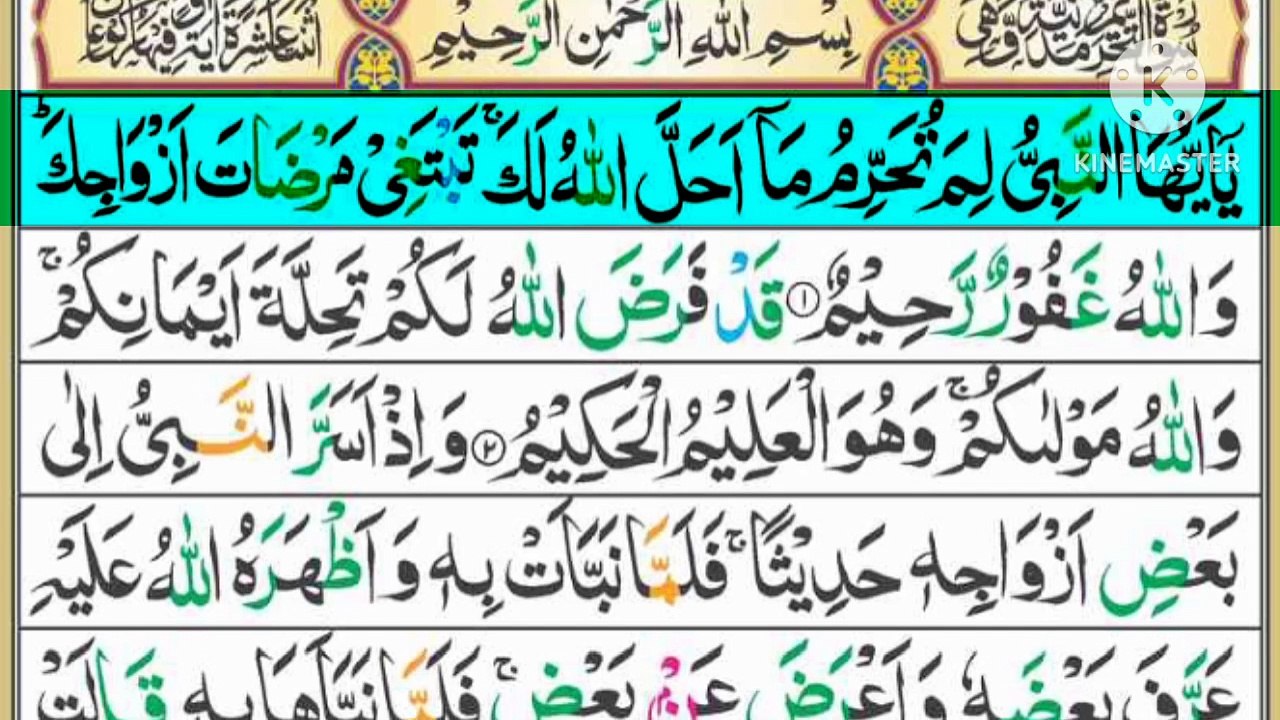 سُوْرَةُ التَّحْرِيْمِ مَدَنِيَّةٌ وَّهِيَ
بِسْمِ اللهِ الرَّحْمٰنِ الرَّحِيْمِ
اثْنَتَا عَشْرَةَ اٰيَةً وَّفِيْهَا رُكُوْعَانِ
يٰۤاَيُّهَا النَّبِىُّ لِمَ تُحَرِّمُ مَاۤ اَحَلَّ اللهُ لَكَ ۚ تَبْتَغِىْ مَرْضَاتَ اَزْوَاجِكَ ؕ
وَاللهُ غَفُوْرٌ رَّحِيْمٌ ۝۱ قَدْ فَرَضَ اللهُ لَكُمْ تَحِلَّةَ اَيْمَانِكُمْ ۚ
وَاللهُ مَوْلٰىكُمْ ۚ وَهُوَ الْعَلِيْمُ الْحَكِيْمُ ۝۲ وَاِذْ اَسَرَّ النَّبِىُّ اِلٰى
بَعْضِ اَزْوَاجِهٖ حَدِيْثًا ۚ فَلَمَّا نَبَّاَتْ بِهٖ وَاَظْهَرَهُ اللهُ عَلَيْهِ
عَرَّفَ بَعْضَهٗ وَاَعْرَضَ عَنْۢ بَعْضٍ ۚ فَلَمَّا نَبَّاَهَا بِهٖ قَالَتْ
K
KINEMASTER